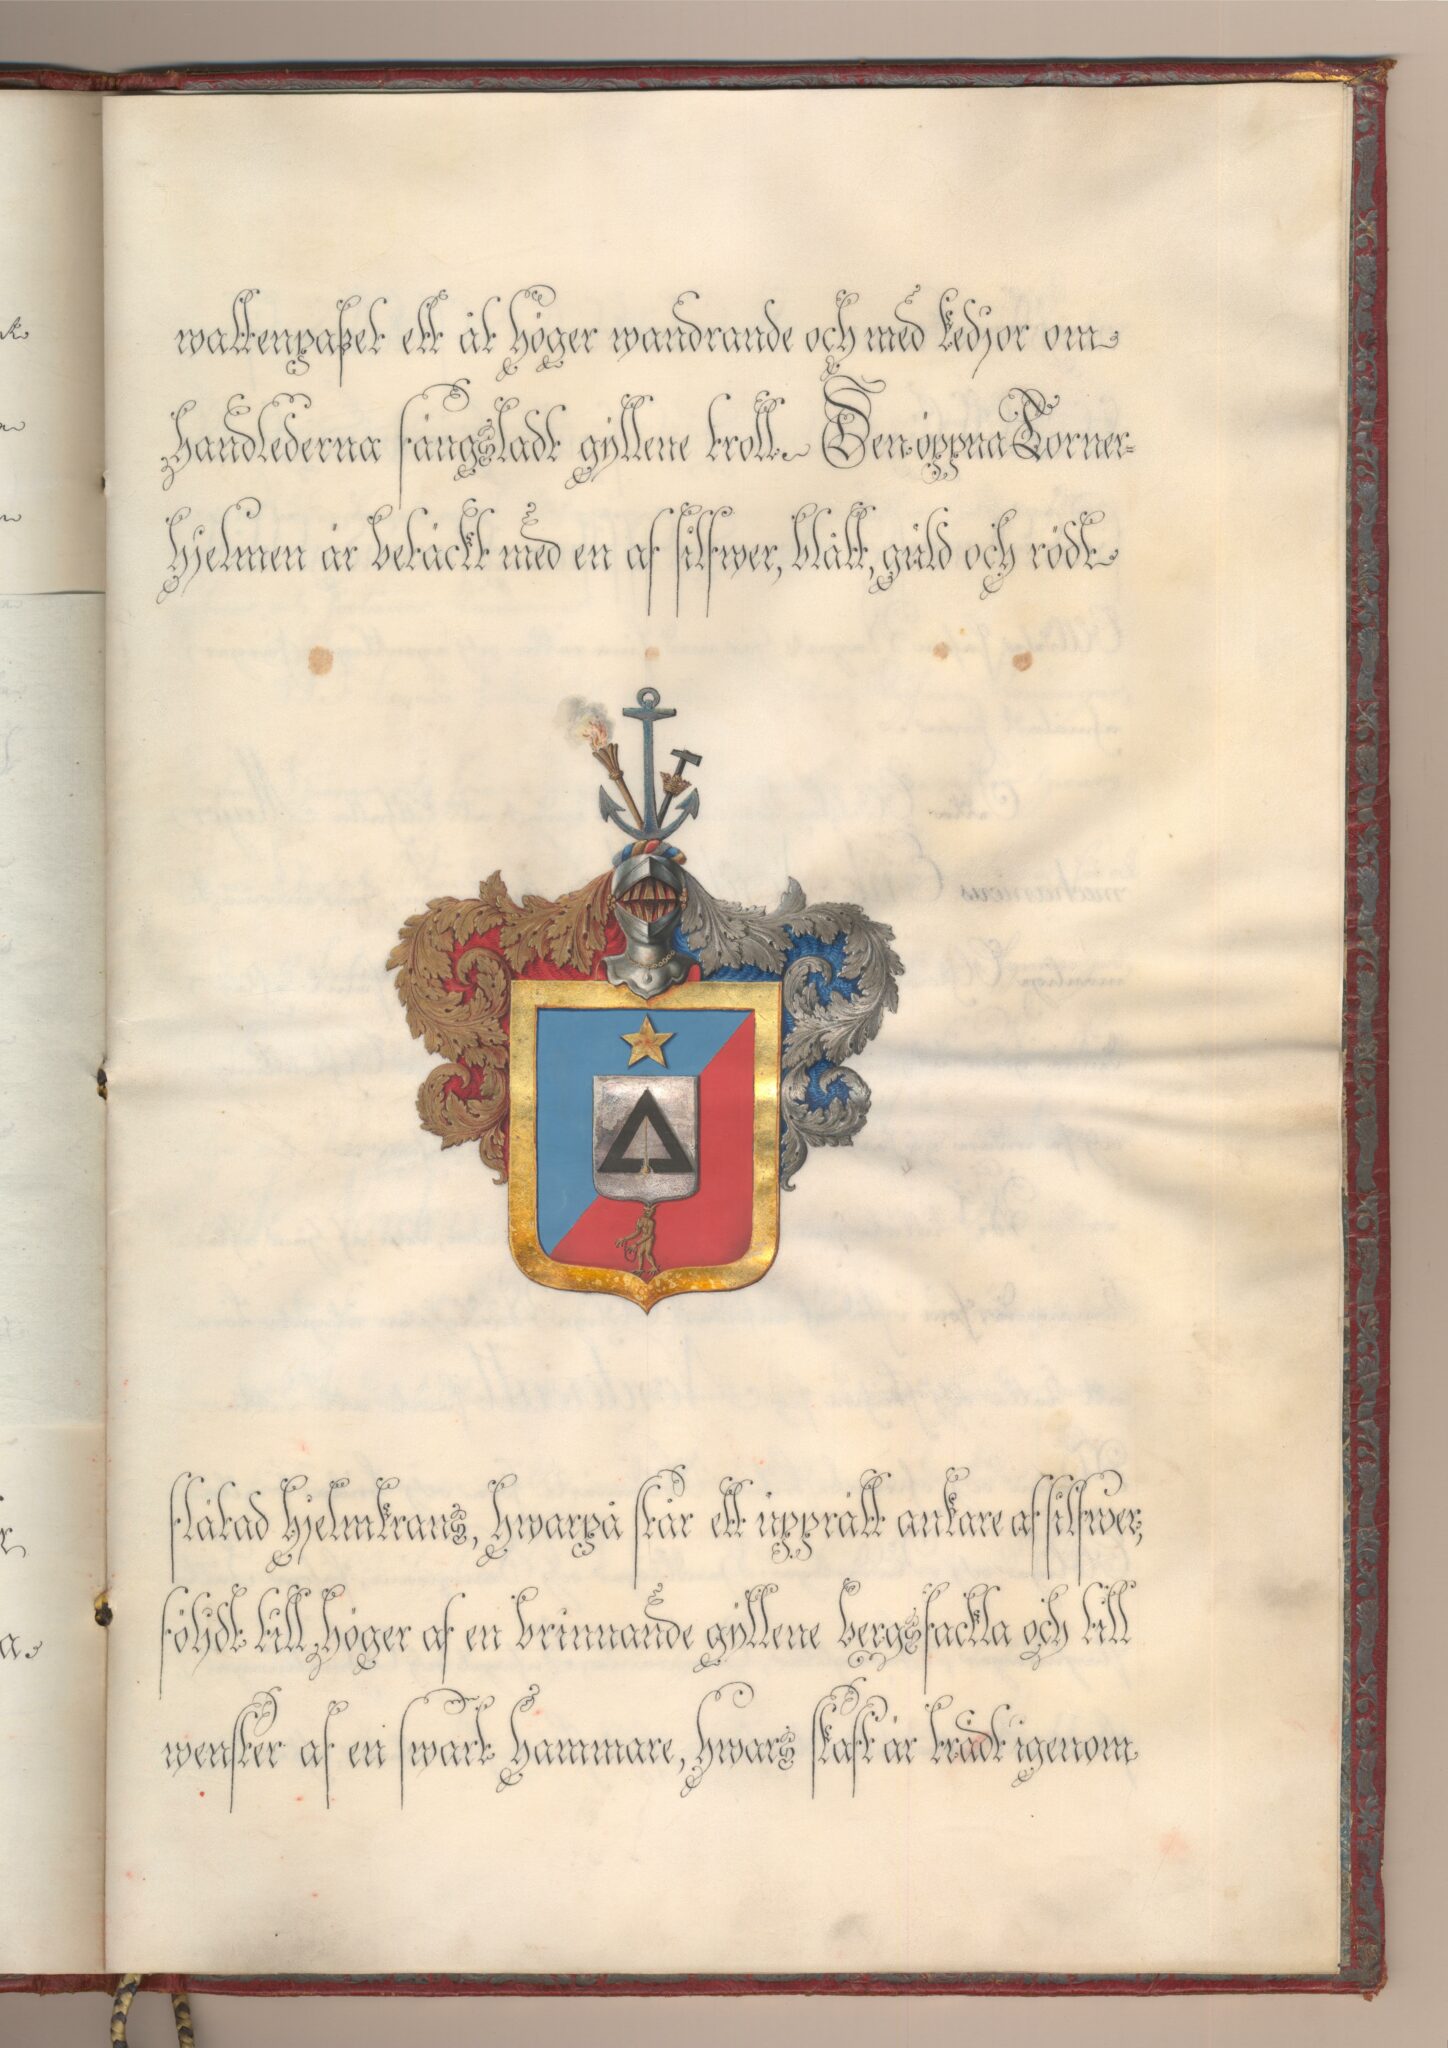 wattenpaßet ett åt höger wandrande och med kedjor om
handlederna fängsladt gyllene troll. Den öppna Torner-
hjelmen är betäckt med en af silfwer, blått, guld och rödt
flätad hjelmkrans, hwarpå står ett upprätt ankare af silfwer,
följdt till höger af en brinnande gyllene bergsfackla och till
wenster af en swart hammare, hwars skaft är trädt igenom